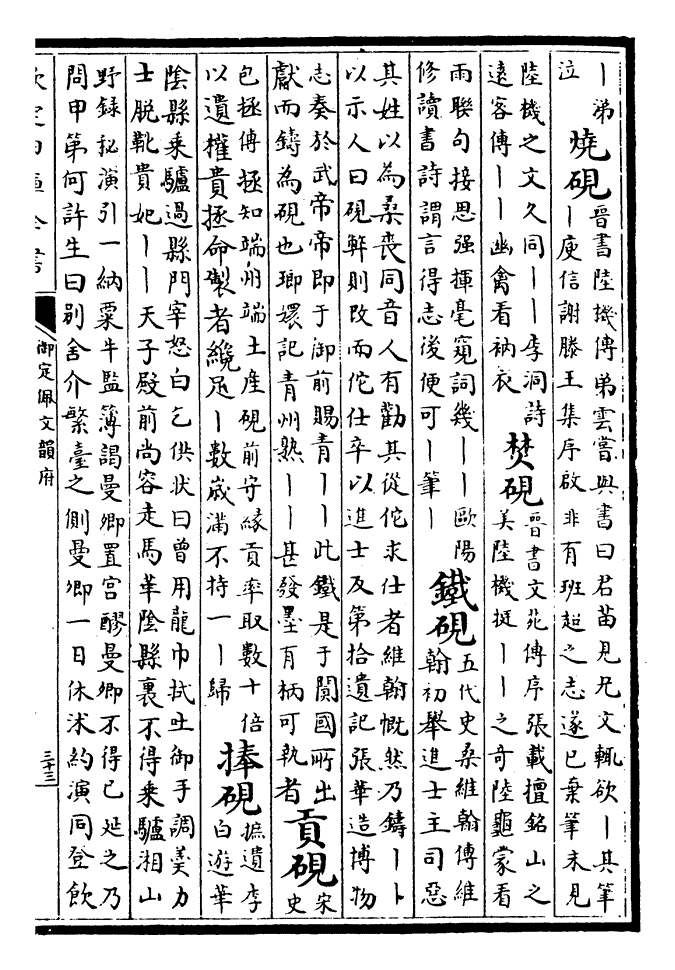 丨弟
泣
燒硯
晉書陸機傳弟雲嘗與書曰君苗見兄文輒欲丨其筆
丨庾信謝滕王集序啟非有班超之志遂已棄筆未見
陸機之文久同丨丨李洞詩
遠客傳丨丨幽禽看衲衣
焚硯
晉書文苑傳序張載擅銘山之
美陸機挺丨丨之奇陸龜蒙看
雨聯句接思强揮毫窺詞幾丨丨歐陽
修讀書詩謂言得志後便可丨筆丨
鐵硯
五代史桑維翰傳維
翰初舉進士主司惡
其姓以為桑喪同音人有勸其從佗求仕者維翰慨然乃鑄丨卜
以示人曰硯弊則改而佗仕卒以進士及第拾遺記張華造博物
志奏於武帝帝即于御前賜青丨丨此鐵是于闐國所出
獻而鑄為硯也瑯嬛記青州熟丨丨甚發墨有柄可執者
貢硯
宋
史
包拯傳拯知端州端土產硯前守緣貢率取數十倍
以遺權貴拯命製者纔足丨數歲滿不持一丨歸
捧硯
摭遺李
白遊華
陰縣乘驢過縣門宰怒白乞供狀曰曾用龍巾拭吐御手調羹力
士脱靴貴妃丨丨天子殿前尚容走馬華陰縣裏不得乘驢湘山
野錄秘演引一納粟牛監簿謁曼卿置宫醪曼卿不得已延之乃
問甲第何許生曰别舍介繁臺之側曼卿一日休沐約演同登飲
欽定四庫全書
御定佩文韻府
三十三